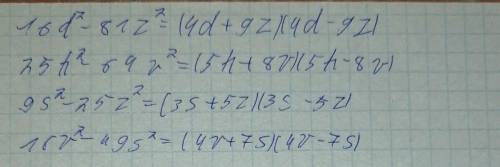 16d² - 81z² = (4d + 9z)(4d - 9z)
25h² - 64v² = (5h + 8v)(5h - 8v)
9s² - 25z² = (3s + 5z)(3s - 5z)
16v² - 49s² = (4v + 7s)(4v - 7s)